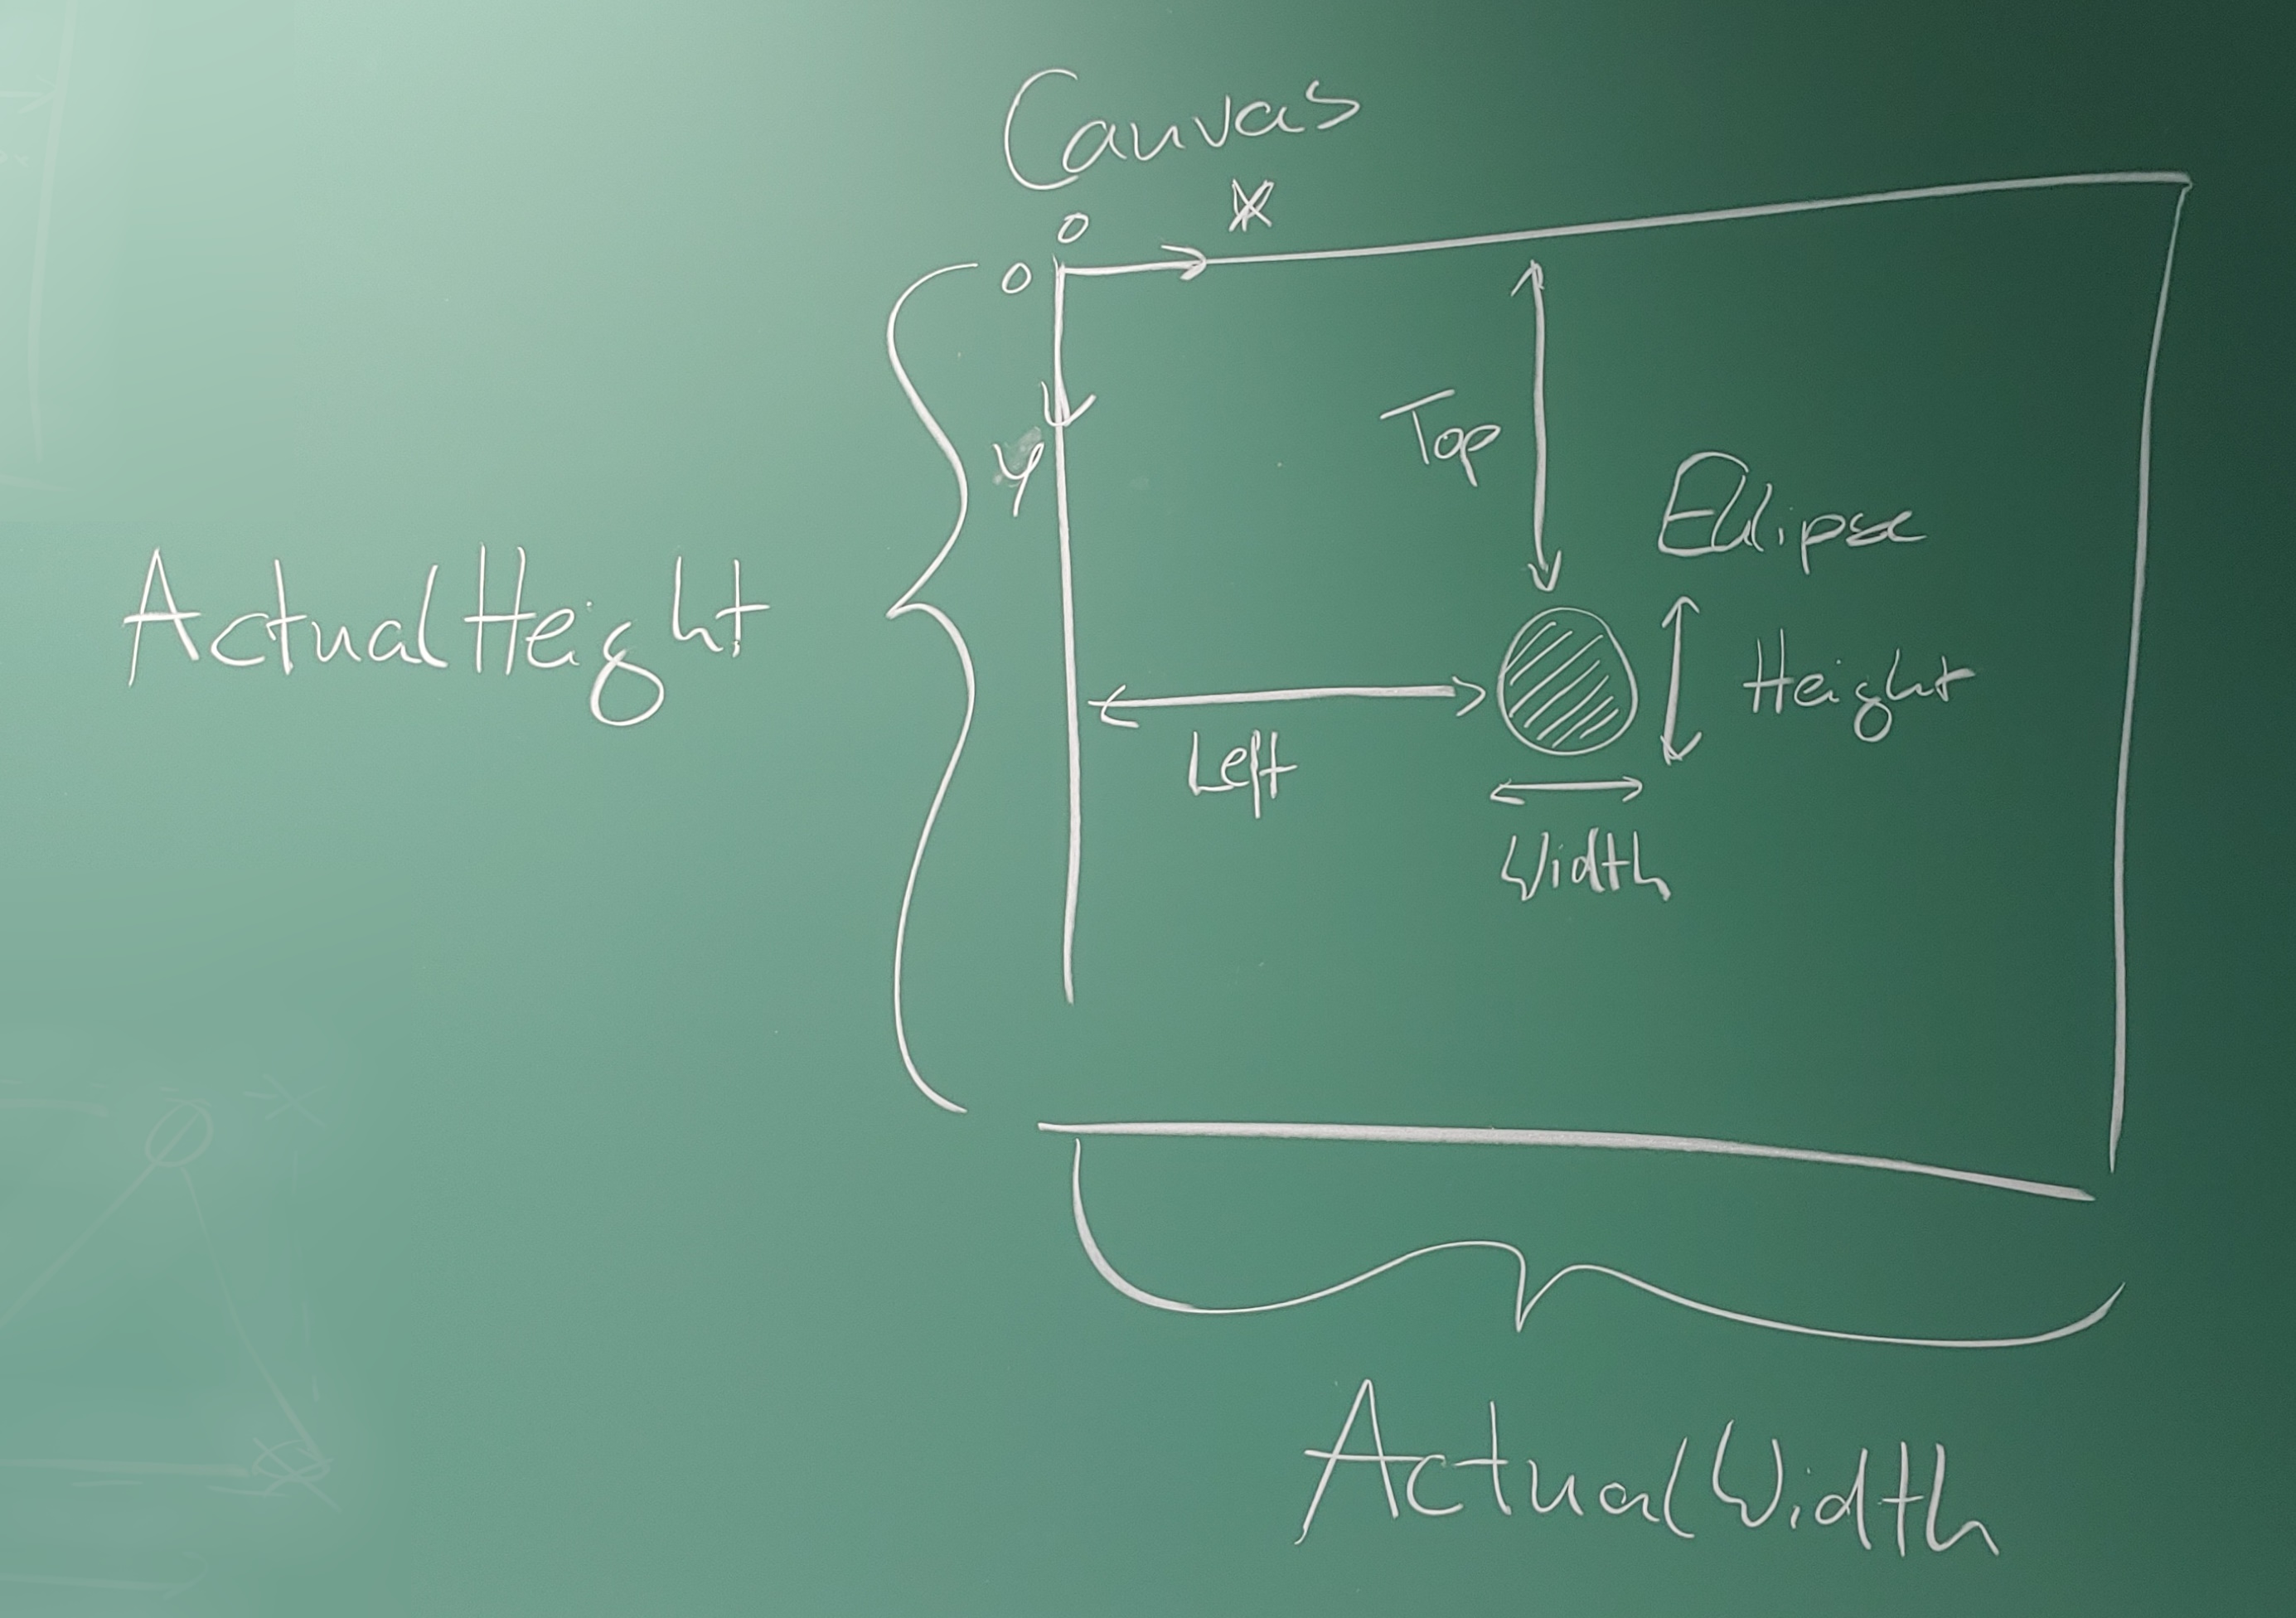 Canvas
0
X
0
Y
Top
Ellipse
ActualHeight
Height
Left
Width
ActualWidth